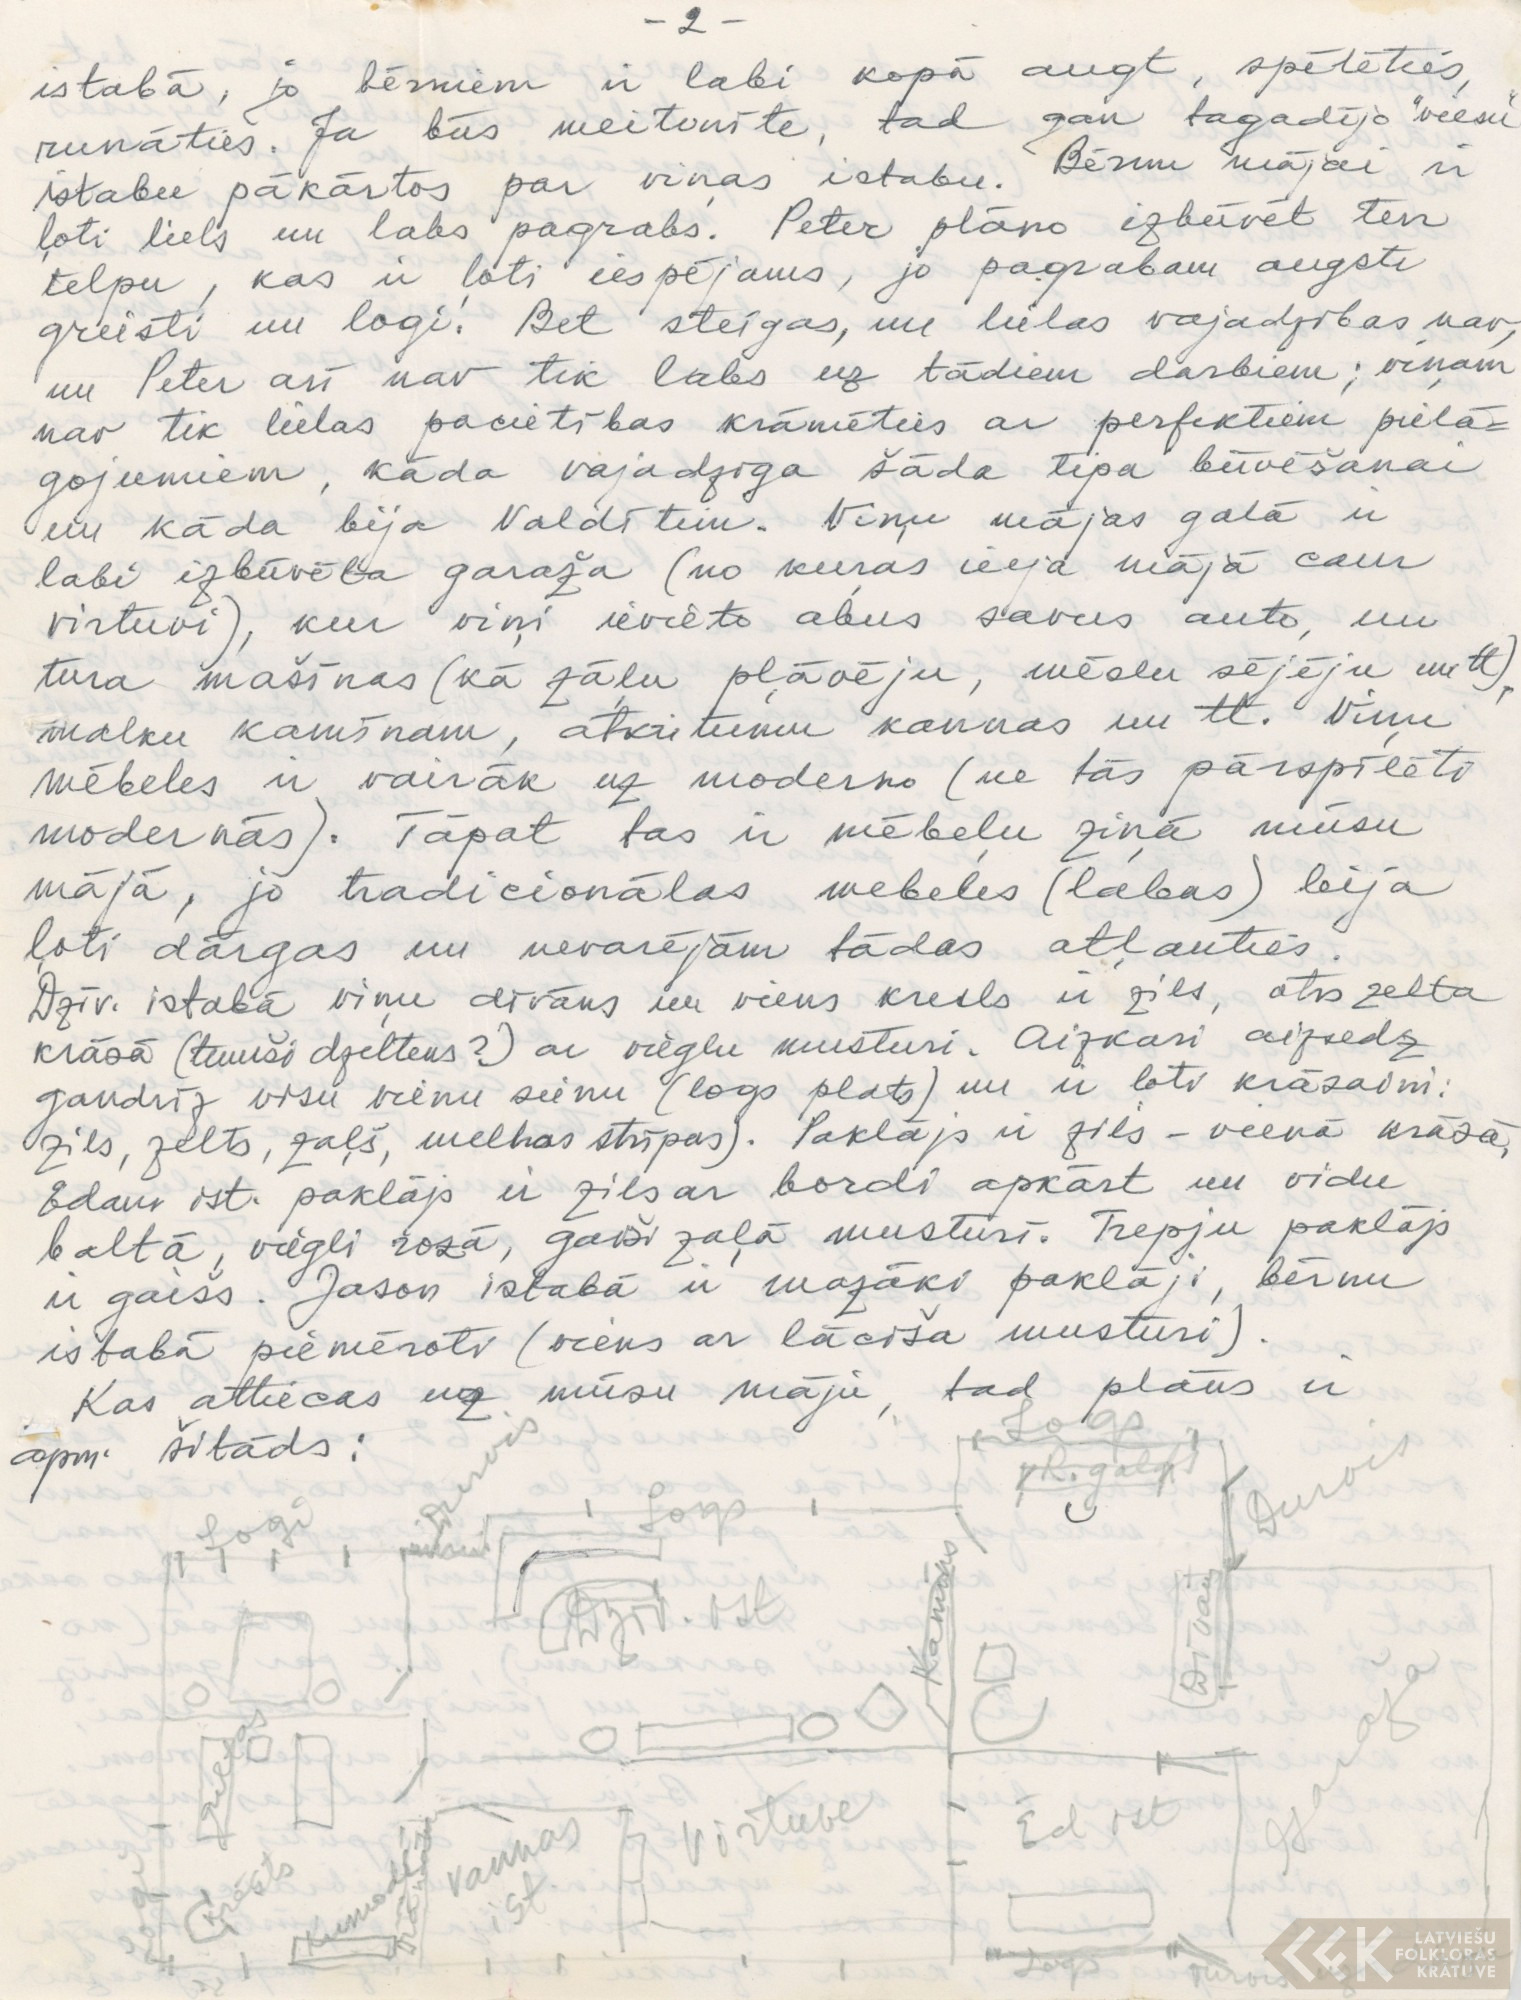 - 2 -
istabā, jo bērniem ir labi kopā augt, spēlēties,
runāties. Ja būs meitenīte, tad gan tagadējo "viesu"
istabu pākārtos par viņas istabu. Bērnu mājai ir
ļoti liels un labs pagrabs. Peter plāno izbūvēt ten
telpu, kas ir ļoti iespējams, jo pagrabam augsti
griesti un logi. Bet steigas, un lielas vajadzības nav,
un Peter arī nav tik labs uz tādiem darbiem; viņam
nav tik lielas pacietības krāmēties ar perfektiem pielā=
gojumiem, kāda vajadzīga šāda tipa būvēšanai
un kāda bija Valdītim. Viņu mājas galā ir
labi izbūvēta garaža (no kuras ieeja mājā caur
virtuvi), kur viņi ievieto abus savus auto, un
tura mašīnas (kā zāļu pļāvēju, mēslu sējēju un tt),
malku kamīnam, atkritumu kannas un tt. Viņu
mēbeles ir vairāk uz moderno (ne tās pārspīlēti
modernās). Tāpat tas ir mēbeļu ziņā mūsu
mājā, jo tradicionālas mebeles (labas) bija
ļoti dārgas un nevarējām tādas atļauties.
Dzīv. istabā viņu dīvāns un viens kresls ir zils, otrs zelta
krāsā (tumši dzeltens?) ar vieglu musturi. Aizkari aizsedz
gandrīz visu vienu sienu (logs plats) un ir ļoti krāsaini:
zils, zelts, zaļš, melnas strīpas). Paklājs ir zils - vienā krāsā,
Ēdam ist. paklājs ir zils ar bordi apkārt un vidu
baltā, viegli rozā, gaiši zaļā musturī. Trepju paklājs
ir gaišs. Jason istabā ir mazāki paklāji, bērnu
istabā piemēroti (viens ar lācīša musturi).
Kas attiecas uz mūsu māju, tad plāns ir
apm. šitāds:
Logs
Durvis
Durvis
Logi
Logs
Dzīv. ist
Kamīns
Dīvāns
Garaža
Gultas
Virtuve
Ēd ist
Vannas
ist.
Krēsls
Kumode
Logi
Logs
Durvis
LATVIEŠU
FOLKLORAS
KRĀTUVE